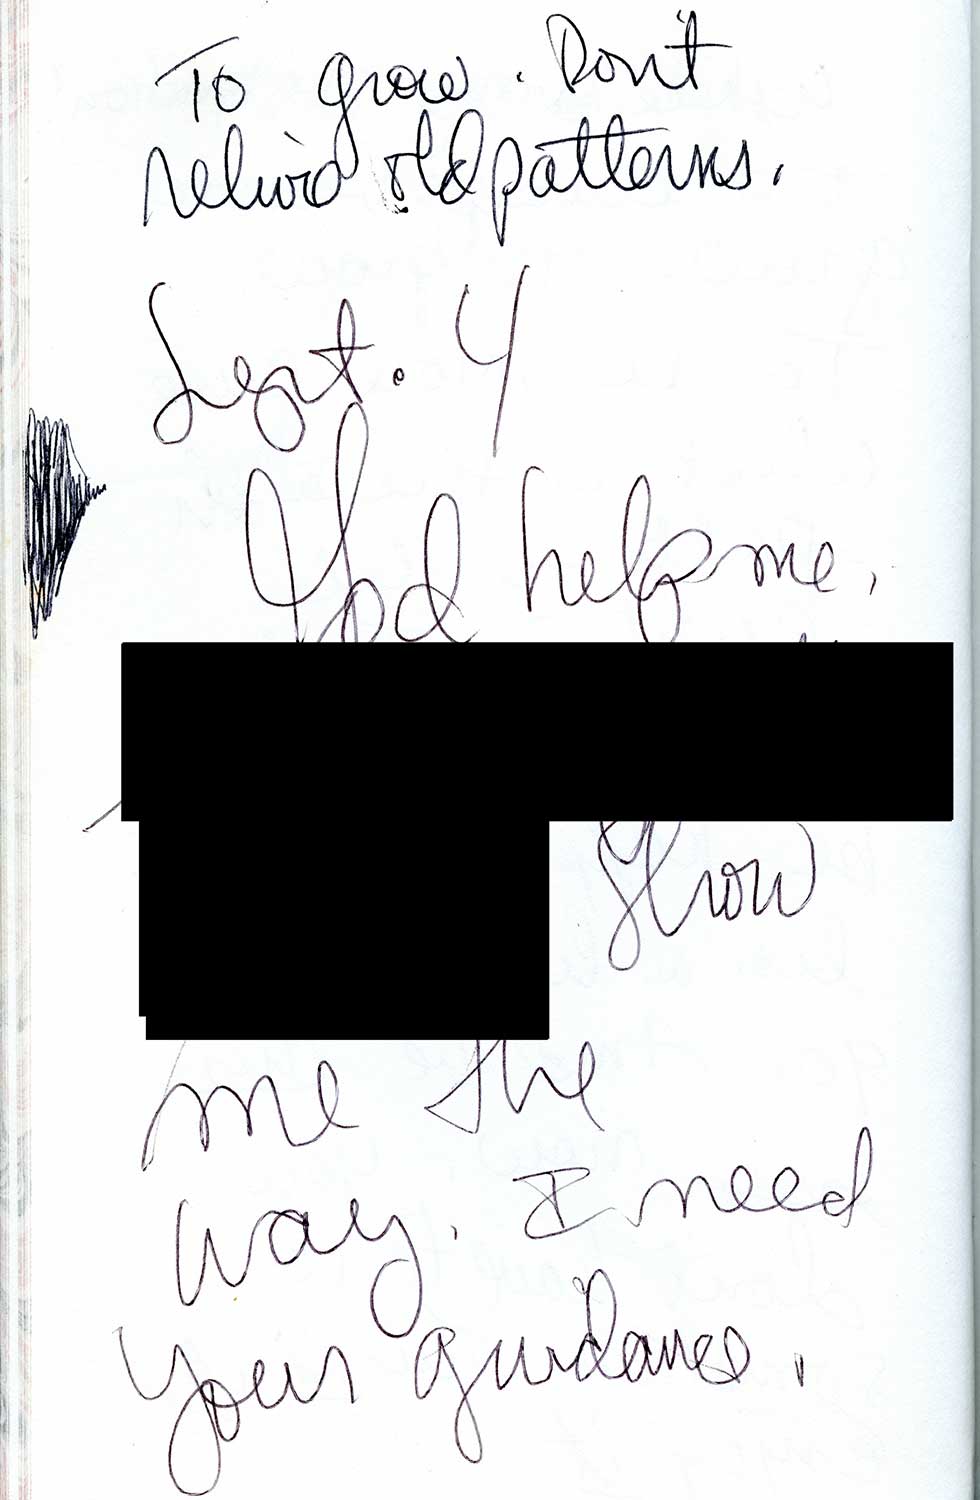 To grow. Don't
relivid old patterns.
Sept. 4
God help me.
Show
me the
way. I need
your guidance.